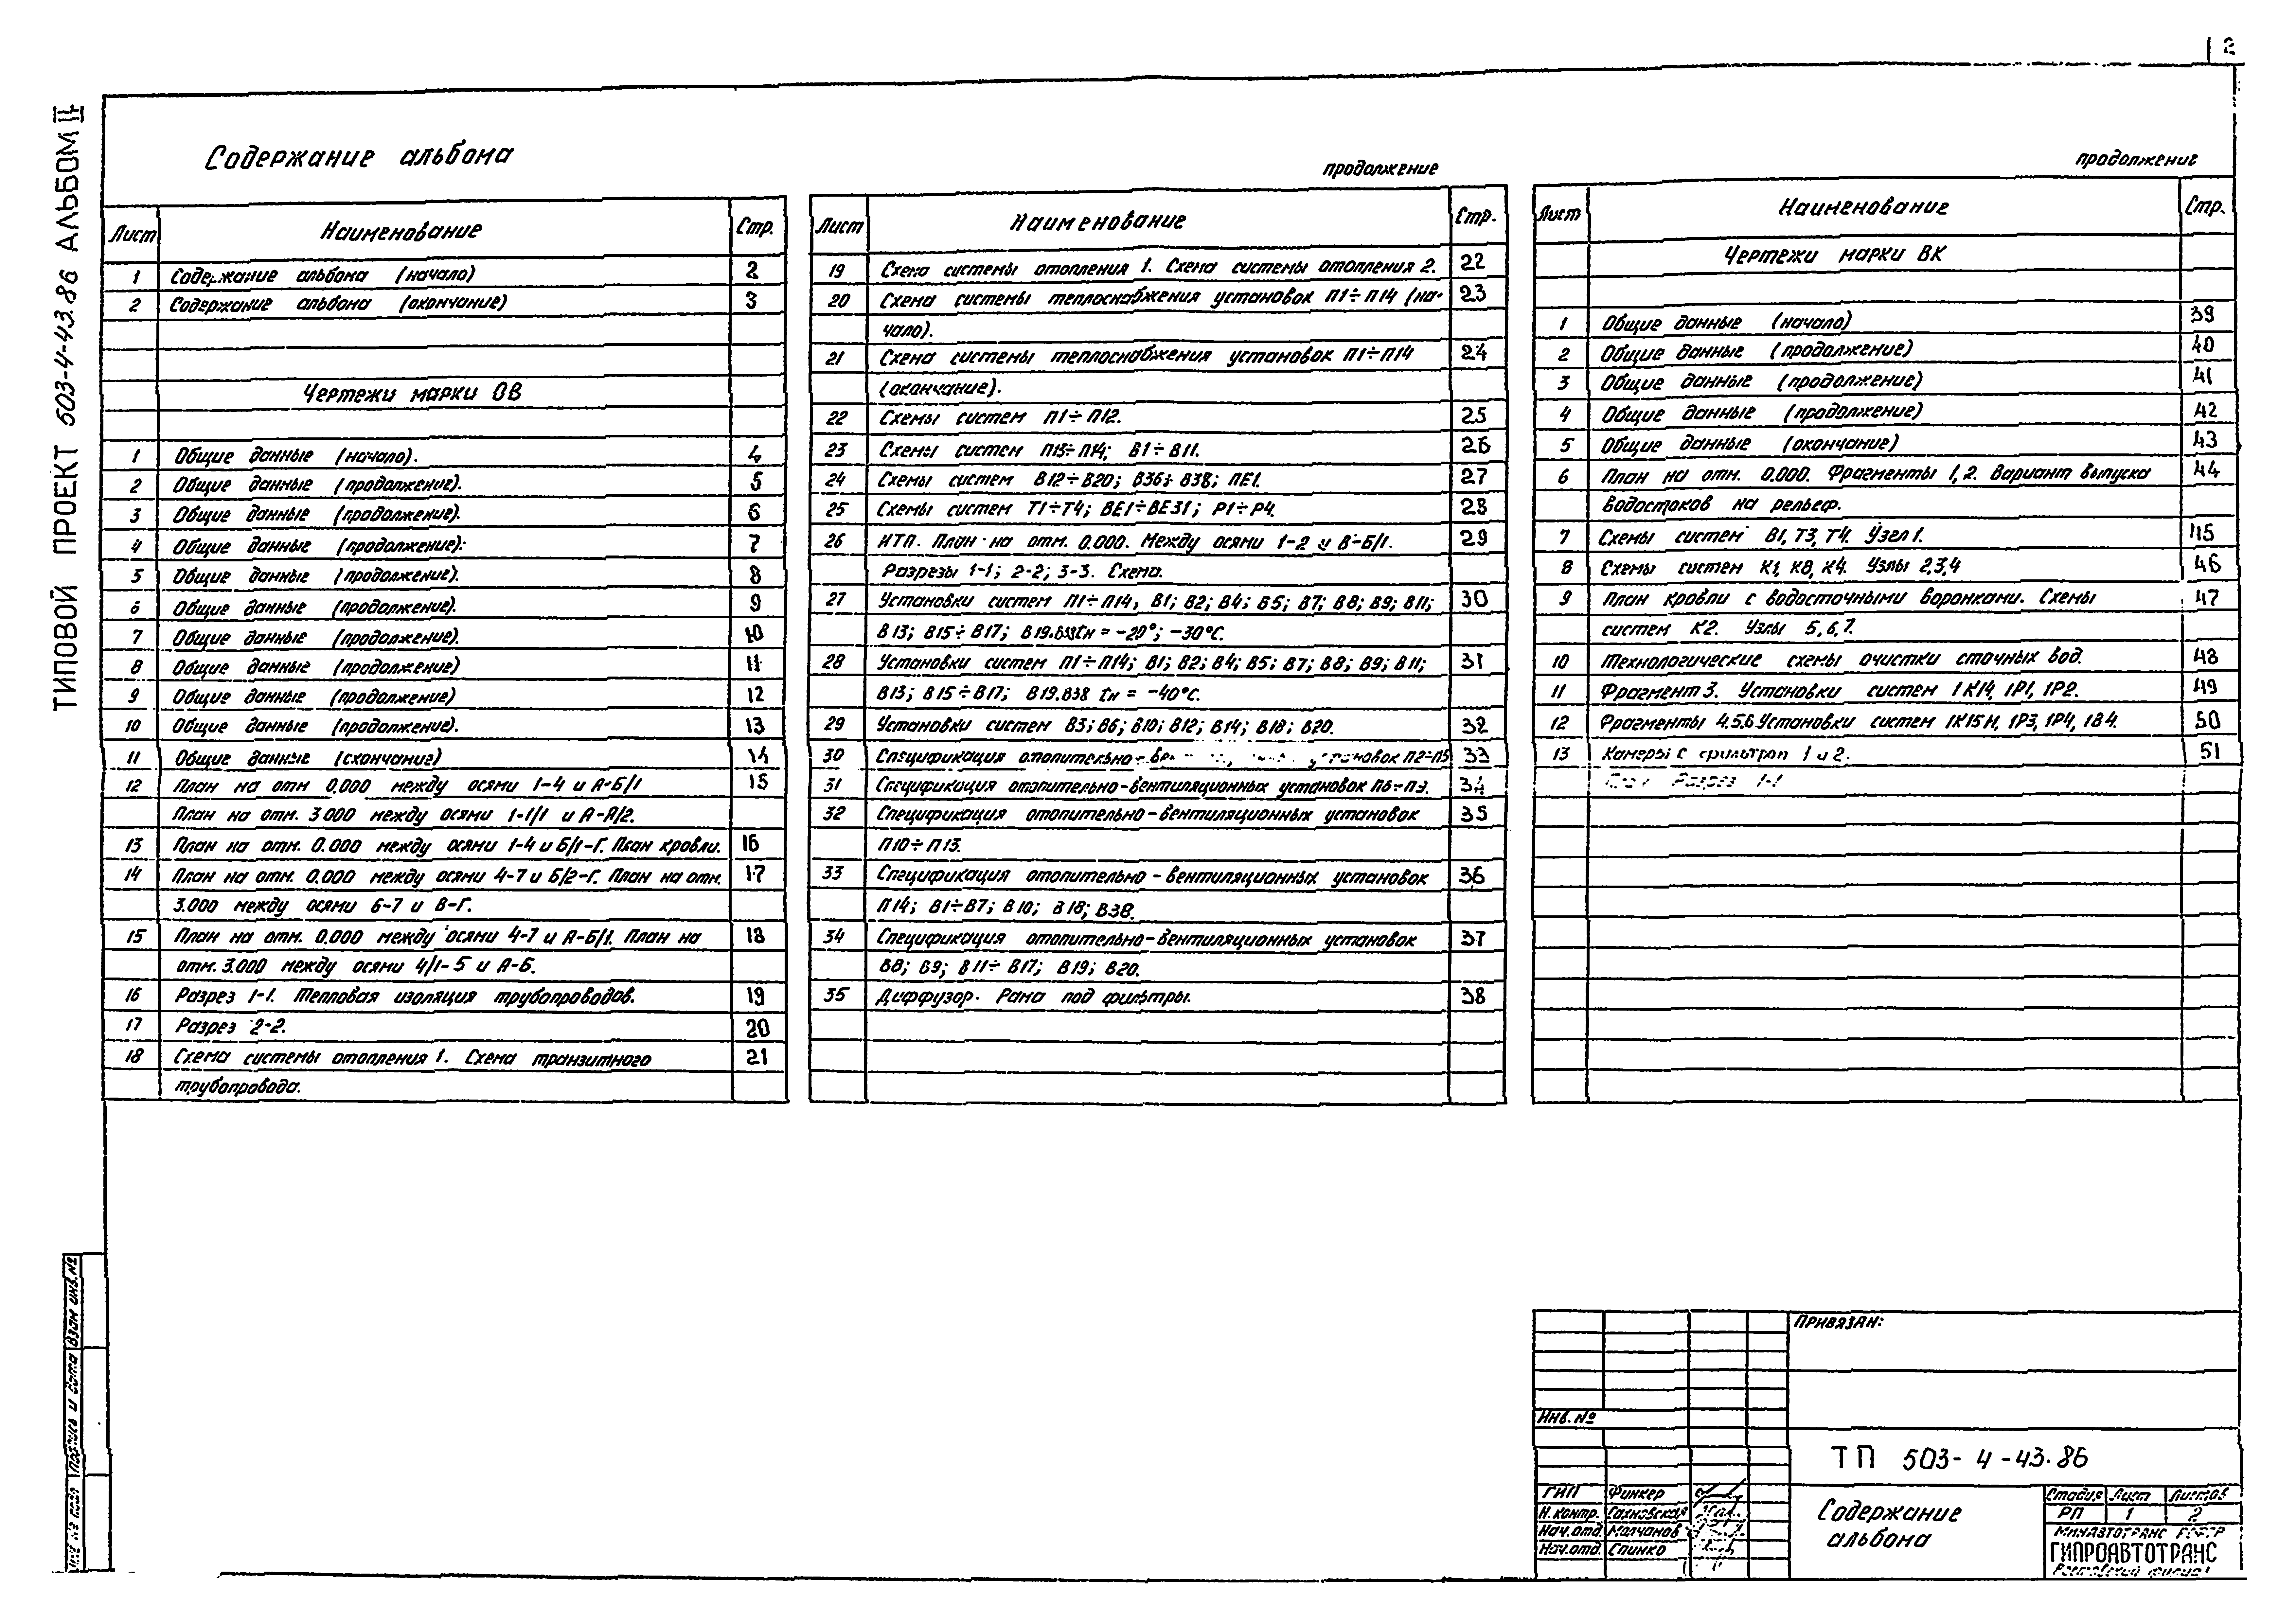 2
ТИПОВОЙ ПРОЕКТ 503-4-43.86 АЛЬБОМ II
Содержание альбома
Лист Наименование Стр.
1 Содержание альбома (начало) 2
2 Содержание альбома (окончание) 3
Чертежи марки ОВ
1 Общие данные (начало). 4
2 Общие данные (продолжение). 5
3 Общие данные (продолжение). 6
4 Общие данные (продолжение). 7
5 Общие данные (продолжение). 8
6 Общие данные (продолжение). 9
7 Общие данные (продолжение). 10
8 Общие данные (продолжение) 11
9 Общие данные (продолжение) 12
10 Общие данные (продолжение). 13
11 Общие данные (окончание) 14
12 План на отм 0.000 между осями 1-4 и А-Б/1 15
План на отм. 3 000 между осями 1-1/1 и А-А/2.
13 План на отм. 0.000 между осями 1-4 и Б/1-Г. План кровли. 16
14 План на отм. 0.000 между осями 4-7 и Б/2-Г. План на отм. 17
3.000 между осями 6-7 и В-Г.
15 План на отм. 0.000 между осями 4-7 и А-Б/1. План на 18
отм. 3.000 между осями 4/1-5 и А-Б.
16 Разрез 1-1. Тепловая изоляция трубопроводов. 19
17 Разрез 2-2. 20
18 Схема системы отопления 1. Схема транзитного 21
трубопровода.
продолжение
Лист Наименование Стр.
19 Схема системы отопления 1. Схема системы отопления 2. 22
20 Схема системы теплоснабжения установок П1÷П14 (на- 23
чало).
21 Схема системы теплоснабжения установок П1÷П14 24
(окончание).
22 Схемы систем П1÷П12. 25
23 Схемы систем П13÷П14; В1÷В11. 26
24 Схемы систем В12÷В20; В36÷В38; ПЕ1. 27
25 Схемы систем Т1÷Т4; ВЕ1÷ВЕ31; Р1÷Р4. 28
26 ИТП. План на отм. 0.000. Между осями 1-2 и В-Б/1. 29
Разрезы 1-1; 2-2; 3-3. Схема.
27 Установки систем П1÷П14, В1; В2; В4; В5; В7; В8; В9; В11; 30
В13; В15÷В17; В19.В38 tн = -20°; -30°С.
28 Установки систем П1÷П14; В1; В2; В4; В5; В7; В8; В9; В11; 31
В13; В15÷В17; В19.В38 tн = -40°С.
29 Установки систем В3; В6; В10; В12; В14; В18; В20. 32
30 Спецификация отопительно- установок П2÷П5 33
31 Спецификация отопительно-вентиляционных установок П6÷П9. 34
32 Спецификация отопительно-вентиляционных установок 35
П10÷П13.
33 Спецификация отопительно-вентиляционных установок 36
П14; В1÷В7; В10; В18; В38.
34 Спецификация отопительно-вентиляционных установок 37
В8; В9; В11÷В17; В19; В20.
35 Диффузор. Рама под фильтры. 38
продолжение
Лист Наименование Стр.
Чертежи марки ВК
1 Общие данные (начало) 39
2 Общие данные (продолжение) 40
3 Общие данные (продолжение) 41
4 Общие данные (продолжение) 42
5 Общие данные (окончание) 43
6 План на отм. 0.000. Фрагменты 1,2. Вариант выпуска 44
водостоков на рельеф.
7 Схемы систем В1, Т3, Т4. Узел 1. 45
8 Схемы систем К1, К8, К4. Узлы 2,3,4 46
9 План кровли с водосточными воронками. Схемы 47
систем К2. Узлы 5,6,7.
10 Технологические схемы очистки сточных вод. 48
11 Фрагмент 3. Установки систем 1К14, 1Р1, 1Р2. 49
12 Фрагменты 4.5.6. Установки систем 1К15Н, 1Р3, 1Р4, 1В4. 50
13 Камеры с фильтрап 1 и 2. 51
Разрез 1-1
Взам инв.№
Подпись и дата
Инв № подл
Привязан:
Инв. №
ТП 503-4-43.86
ГИП Финкер
Н.контр. Сахновская
Нач.отд. Молчанов
Нач.отд. Спинко
Содержание
альбома
Стадия Лист Листов
РП 1 2
Минавтотранс РСФСР
ГИПРОАВТОТРАНС
Ростовский филиал